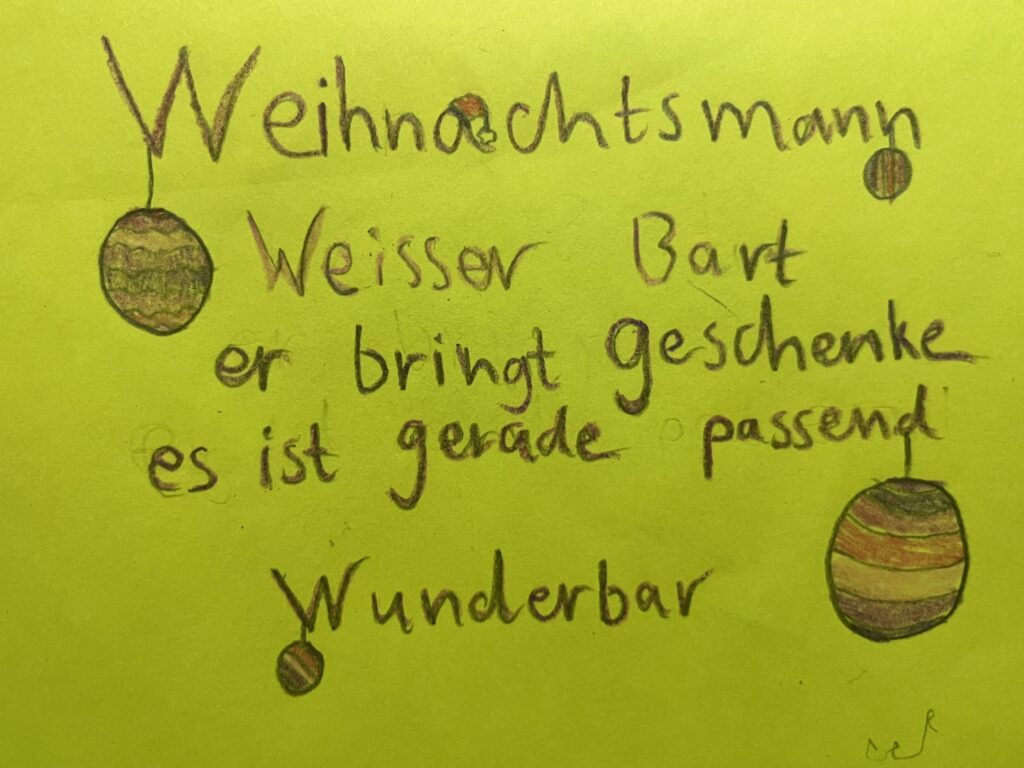 Weihnachtsmann
Weisser Bart
er bringt geschenke
es ist gerade passend
Wunderbar